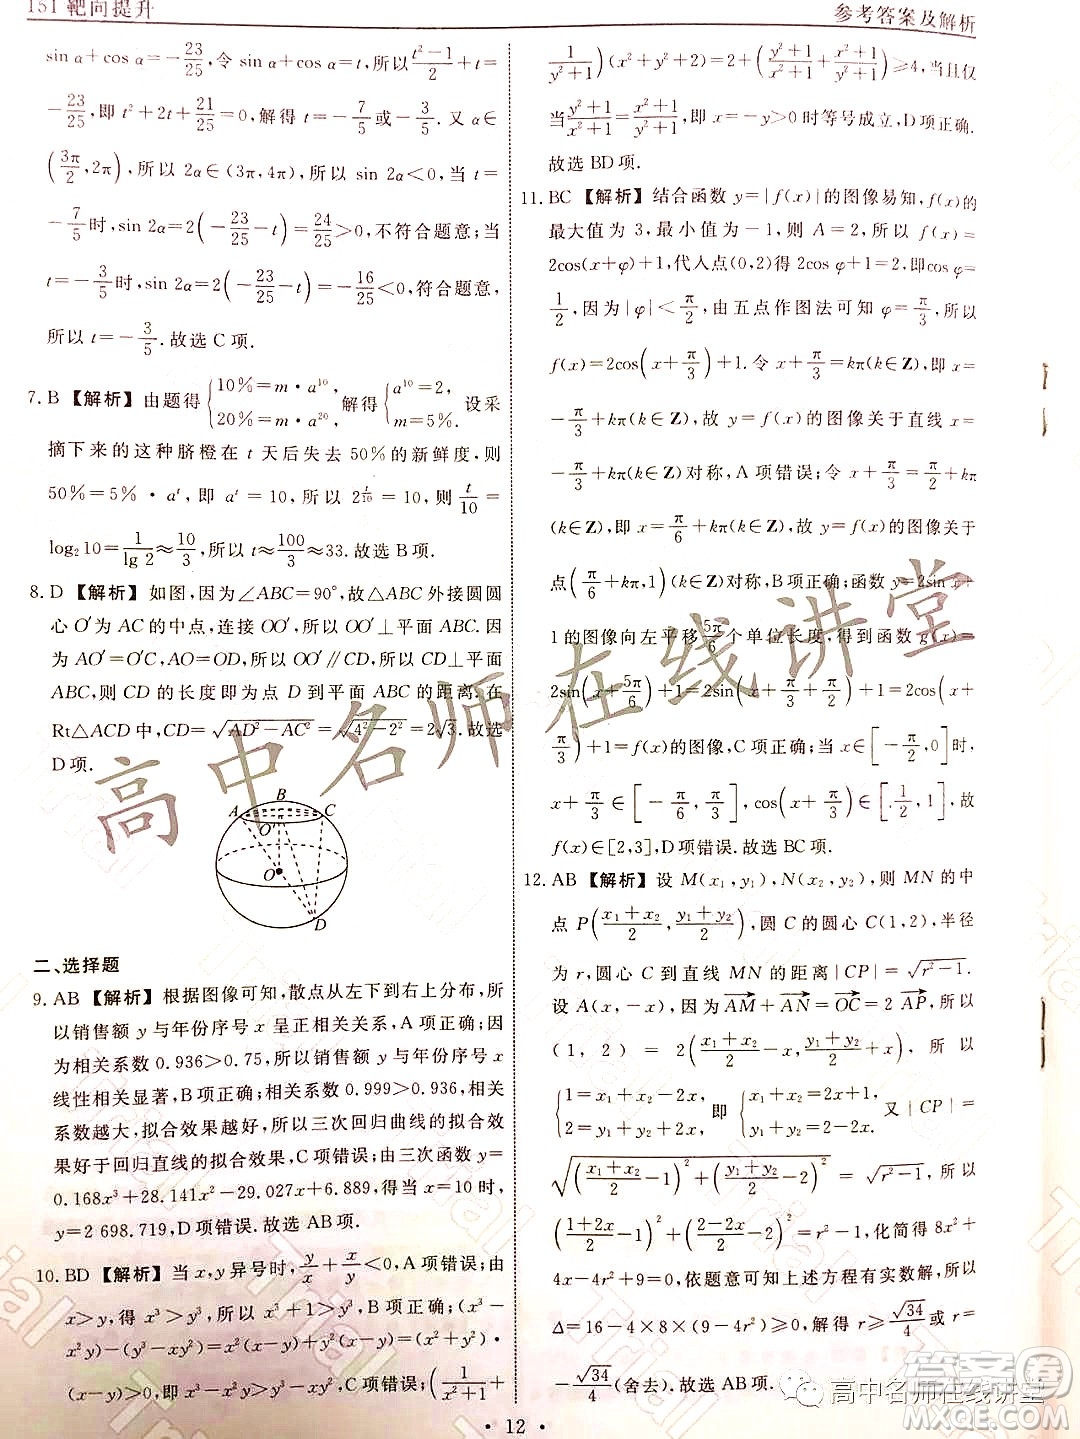 151 靶向提升
参考答案及解析
sin α+cos α=-23/25,令 sin α+cos α=t,所以(t²-1)/2+t=
-23/25,即 t²+2t+21/25=0,解得 t=-7/5或-3/5.又 α∈
(3π/2,2π),所以 2α∈(3π,4π),所以 sin 2α<0,当 t=
-7/5时,sin 2α=2(-23/25-t)=24/25>0,不符合题意;当
t=-3/5时,sin 2α=2(-23/25-t)=-16/25<0,符合题意,
所以 t=-3/5.故选 C 项.
7. B【解析】由题得{10%=m·a¹⁰, 20%=m·a²⁰, 解得{a¹⁰=2, m=5%. 设采
摘下来的这种脐橙在 t 天后失去 50%的新鲜度,则
50%=5%·aᵗ,即 aᵗ=10,所以 2^(t/10)=10,则 t/10=
log₂10=1/lg 2≈10/3,所以 t≈100/3≈33.故选 B 项.
8. D【解析】如图,因为∠ABC=90°,故△ABC 外接圆圆
心 O′为 AC 的中点,连接 OO′,所以 OO′⊥平面 ABC.因
为 AO′=O′C,AO=OD,所以 OO′∥CD,所以 CD⊥平面
ABC,则 CD 的长度即为点 D 到平面 ABC 的距离.在
Rt△ACD 中,CD=√(AD²-AC²)=√(4²-2²)=2√3.故选
D 项.
B
A
C
O′
O
D
二、选择题
9. AB【解析】根据图像可知,散点从左下到右上分布,所
以销售额 y 与年份序号 x 呈正相关关系,A 项正确;因
为相关系数 0.936>0.75,所以销售额 y 与年份序号 x
线性相关显著,B 项正确;相关系数 0.999>0.936,相关
系数越大,拟合效果越好,所以三次回归曲线的拟合效
果好于回归直线的拟合效果,C 项错误;由三次函数 y=
0.168x³+28.141x²-29.027x+6.889,得当 x=10 时,
y=2 698.719,D 项错误.故选 AB 项.
10. BD【解析】当 x,y 异号时,y/x+x/y<0,A 项错误;由
x>y,得 x³>y³,所以 x³+1>y³,B 项正确;(x²+y²)·
(x-y)-(x²-y²)(x+y)=(x-y)[(x²+y²)-(x+
y)²]=-2xy(x-y),C 项错误;(1/(x²+1)+
1/(y²+1))(x²+y²+2)=2+((y²+1)/(x²+1)+(x²+1)/(y²+1))≥4,当且仅
当(y²+1)/(x²+1)=(x²+1)/(y²+1),即 x=-y>0 时等号成立,D 项正确.
故选 BD 项.
11. BC【解析】结合函数 y=|f(x)|的图像易知,f(x)的
最大值为 3,最小值为-1,则 A=2,所以 f(x)=
2cos(x+φ)+1,代入点得 2cos φ+1=2,即cos φ=
1/2,因为|φ|<π/2,由五点作图法可知 φ=π/3,所以
f(x)=2cos(x+π/3)+1.令 x+π/3=kπ(k∈Z),即 x=
-π/3+kπ(k∈Z),故 y=f(x)的图像关于直线 x=
-π/3+kπ(k∈Z)对称,A 项错误;令 x+π/3=π/2+kπ
(k∈Z),即 x=π/6+kπ(k∈Z),故 y=f(x)的图像关于
点(π/6+kπ,1)(k∈Z)对称,B 项正确;函数 y=2sin x+
1的图像向左平移5π/6个单位长度,得到函数 g(x)=
2sin(x+5π/6)+1=2sin(x+π/3+π/2)+1=2cos(x+
π/3)+1=f(x)的图像,C 项正确;当 x∈[-π/3,0]时,
x+π/3∈[-π/6,π/3],cos(x+π/3)∈[1/2,1],故
f(x)∈[2,3],D 项错误.故选 BC 项.
12. AB【解析】设 M(x₁,y₁),N(x₂,y₂),则 MN 的中
点 P((x₁+x₂)/2,(y₁+y₂)/2),圆 C 的圆心 C(1,2),半径
为 r,圆心 C 到直线 MN 的距离|CP|=√(r²-1).
设 A(x,-x),因为AM+AN=OC=2 AP,所以
(1,2)=2((x₁+x₂)/2-x,(y₁+y₂)/2+x),所以
又|CP|=
√(((x₁+x₂)/2-1)²+((y₁+y₂)/2-2)²)=√(r²-1),所以
((1+2x)/2-1)²+((2-2x)/2-2)²=r²-1,化简得 8x²+
4x-4r²+5=0,依题意可知上述方程有实数解,所以
Δ=16-4×8(5-4r²)≥0,解得 r≥√34/4或 r≤
-√34/4(舍去).故选 AB 项.
· 12 ·
高中名师在线讲堂
Trial
高中名师在线讲堂
答案圈
MXQE.COM